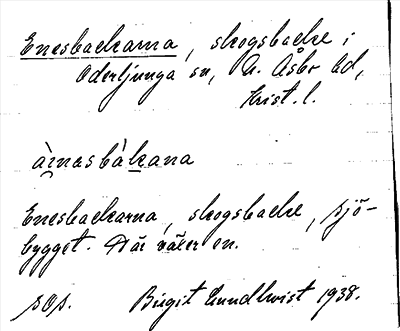 Enesbackarna, skogsbacke i
Oderljunga sn, N. Åsbo hd,
Krist. l.
ènasbàkana
Enesbackarna, skogsbacke, sjö-
bygget. Där växer en.
sep. Birgit Lundkvist 1938.